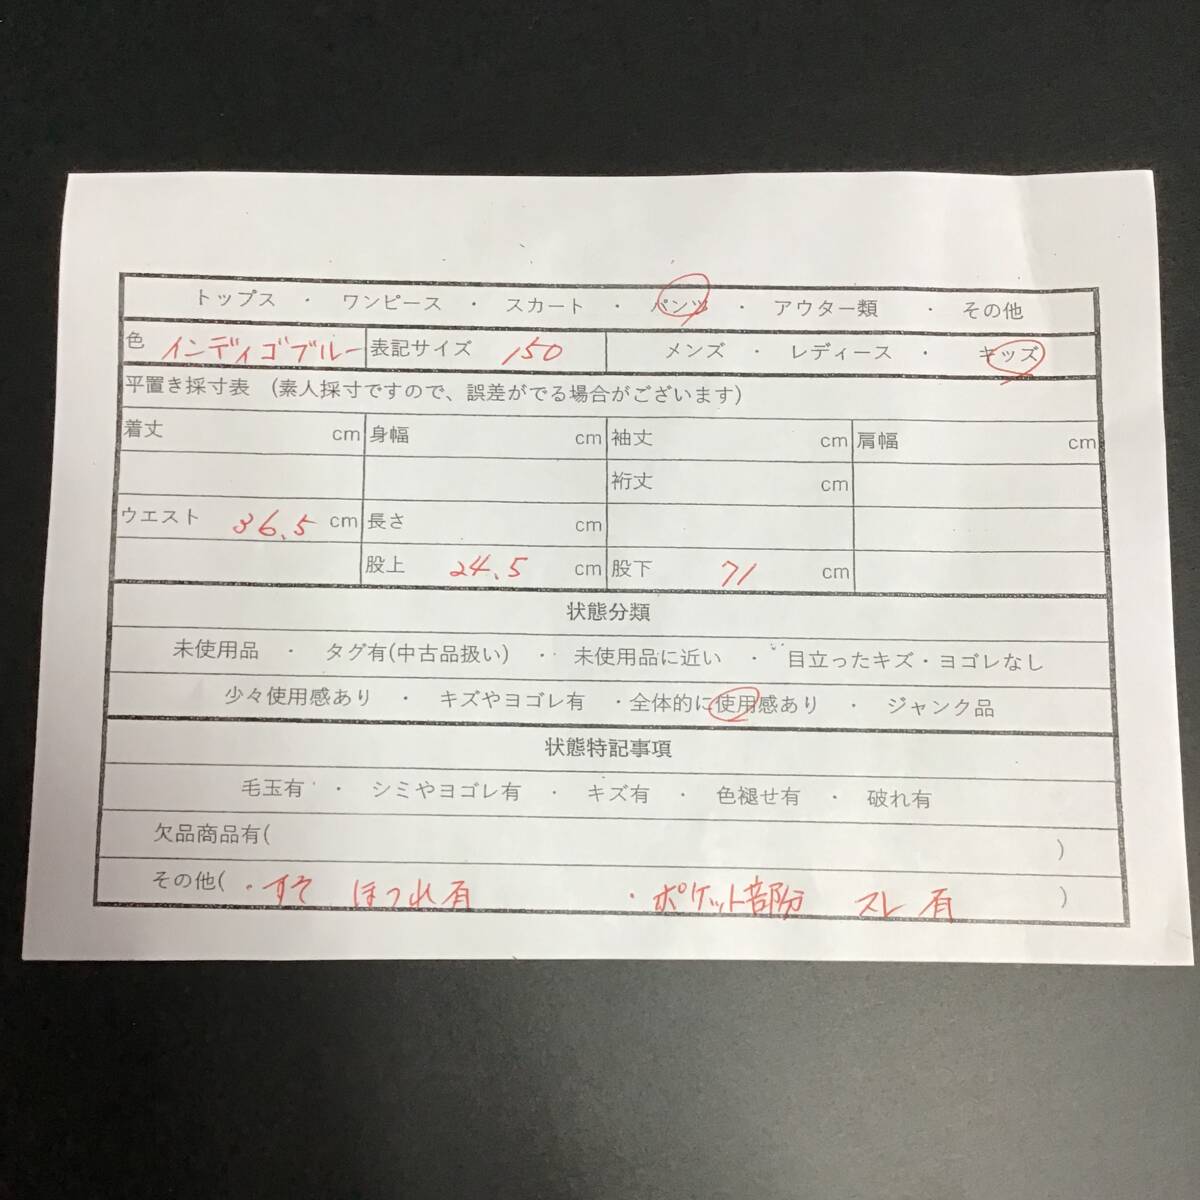 トップス ・ ワンピース ・ スカート ・ パンツ ・ アウター類 ・ その他
色 インディゴブルー 表記サイズ 150 メンズ ・ レディース ・ キッズ
平置き採寸表 (素人採寸ですので、誤差がでる場合がございます)
着丈 cm 身幅 cm 袖丈 cm 肩幅 cm
裄丈 cm
ウエスト 36.5 cm 長さ cm
股上 24.5 cm 股下 71 cm
状態分類
未使用品 ・ タグ有(中古品扱い) ・ 未使用品に近い ・ 目立ったキズ・ヨゴレなし
少々使用感あり ・ キズやヨゴレ有 ・全体的に使用感あり ・ ジャンク品
状態特記事項
毛玉有 ・ シミやヨゴレ有 ・ キズ有 ・ 色褪せ有 ・ 破れ有
欠品商品有( )
その他( ・すそ ほつれ有 ・ポケット部分 スレ有 )